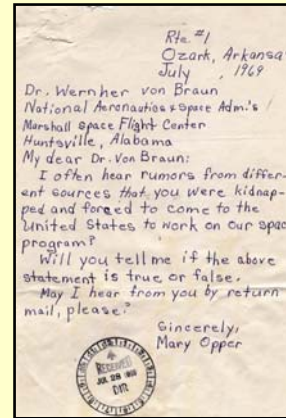 Rte. #1
Ozark, Arkansa
July , 1969
Dr. Wernher von Braun
National Aeronautics & Space Adm.'s
Marshall Space Flight Center
Huntsville, Alabama
My dear Dr. Von Braun:
I often hear rumors from differ-
ent sources that you were kidnap-
ped and forced to come to the
United States to work on our spac
program?
Will you tell me if the above
statement is true or false.
May I hear from you by return
mail, please?
Sincerely,
Mary Opper
RECEIVED
JUL 28 1969
DIR